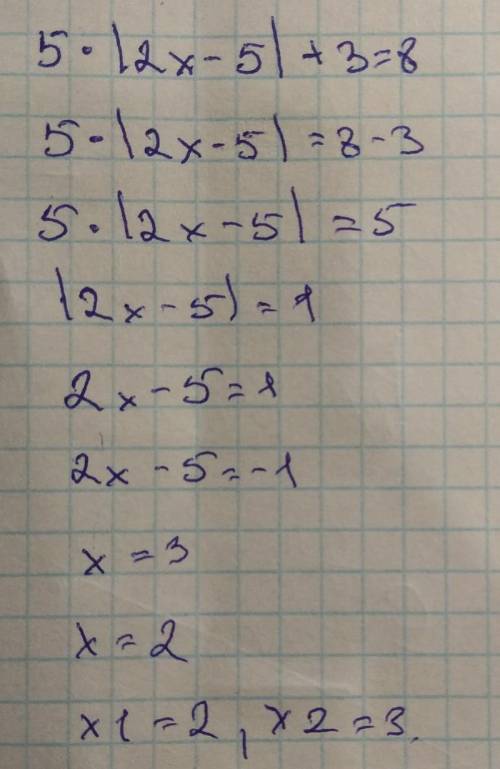 5·|2x-5|+3=8
5·|2x-5|=8-3
5·|2x-5|=5
|2x-5|=1
2x-5=1
2x-5=-1
x=3
x=2
x1=2, x2=3.